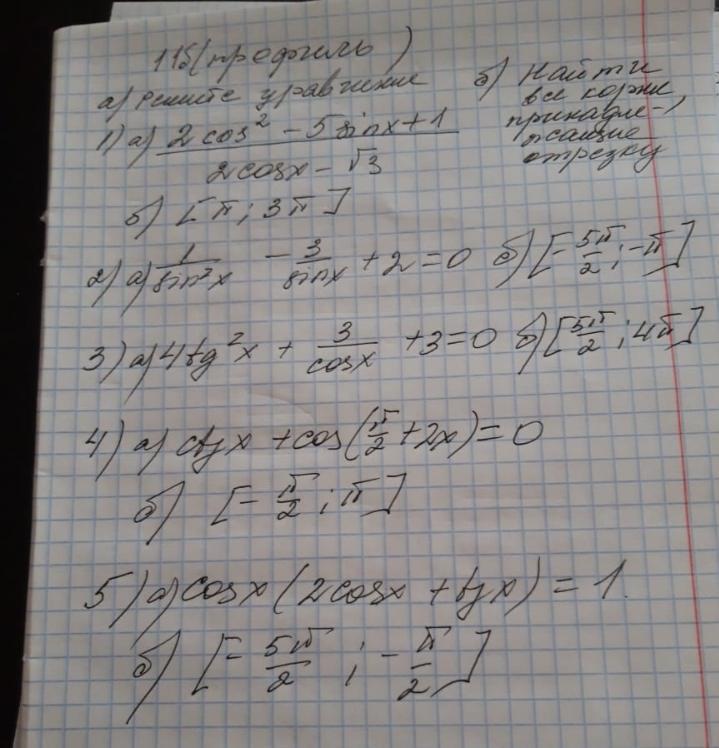 11б (профиль)
а) Решите уравнение
б) Найти
все корни,
принадле-
жащие
отрезку
1) а) (2 cos² - 5 sin x + 1) / (2 cos x - √3)
б) [π ; 3π]
2) а) 1/sin²x - 3/sin x + 2 = 0 б) [-5π/2 ; -π]
3) а) 4tg²x + 3/cos x + 3 = 0 б) [5π/2 ; 4π]
4) а) ctg x + cos(π/2 + 2x) = 0
б) [-π/2 ; π]
5) а) cos x (2cos x + tg x) = 1.
б) [-5π/2 ; -π/2]